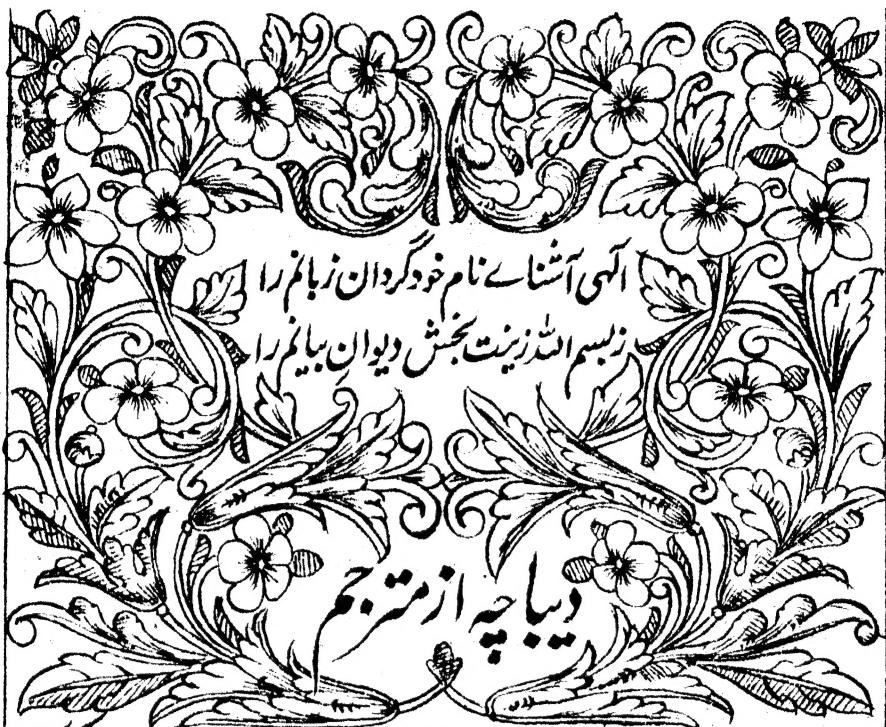 الٰہی آشناے نام خود گردان زبانم را
ز بسم اللہ زینت بخش دیوان بیانم را
دیباچہ از مترجم